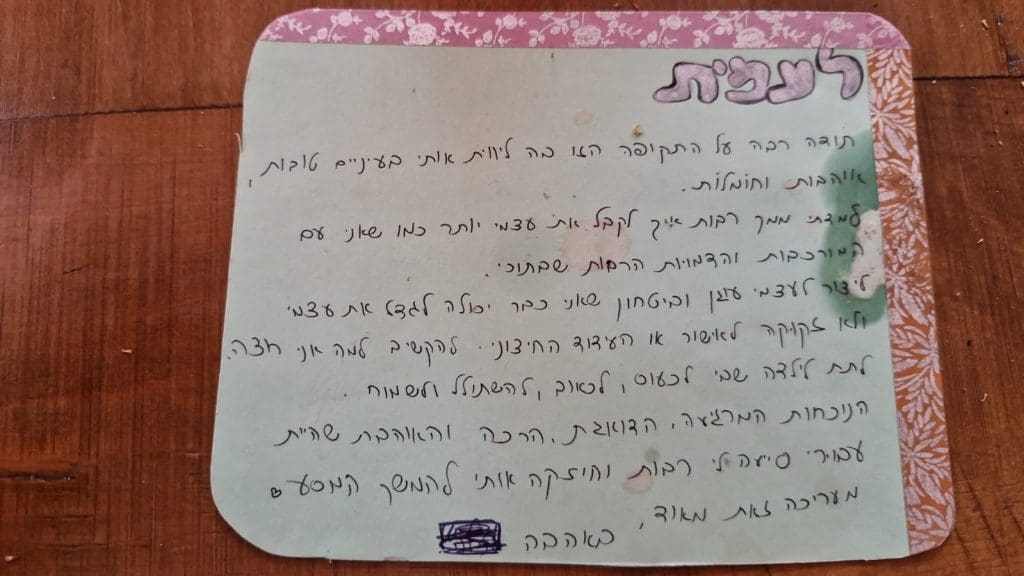 לעמית
תודה רבה על התקופה הזו בה ליווית אותי בעיניים טובות,
אוהבות וחומלות.
למדתי ממך רבות איך לקבל את עצמי יותר כמו שאני עם
המורכבות והדמויות הרבות שבתוכי.
ליצור לעצמי עוגן וביטחון שאני כבר יכולה לגדל את עצמי
ולא זקוקה לאישור או העידוד החיצוני. להקשיב למה אני רוצה.
לתת לילדה שבי לכעוס, לכאוב, להשתולל ולשמוח.
הנוכחות המרגיעה, הדואגת, הרכה והאוהבת שהיית
עבורי סייעה לי רבות וחיזקה אותי להמשך המסע ♡
מעריכה זאת מאוד,
באהבה